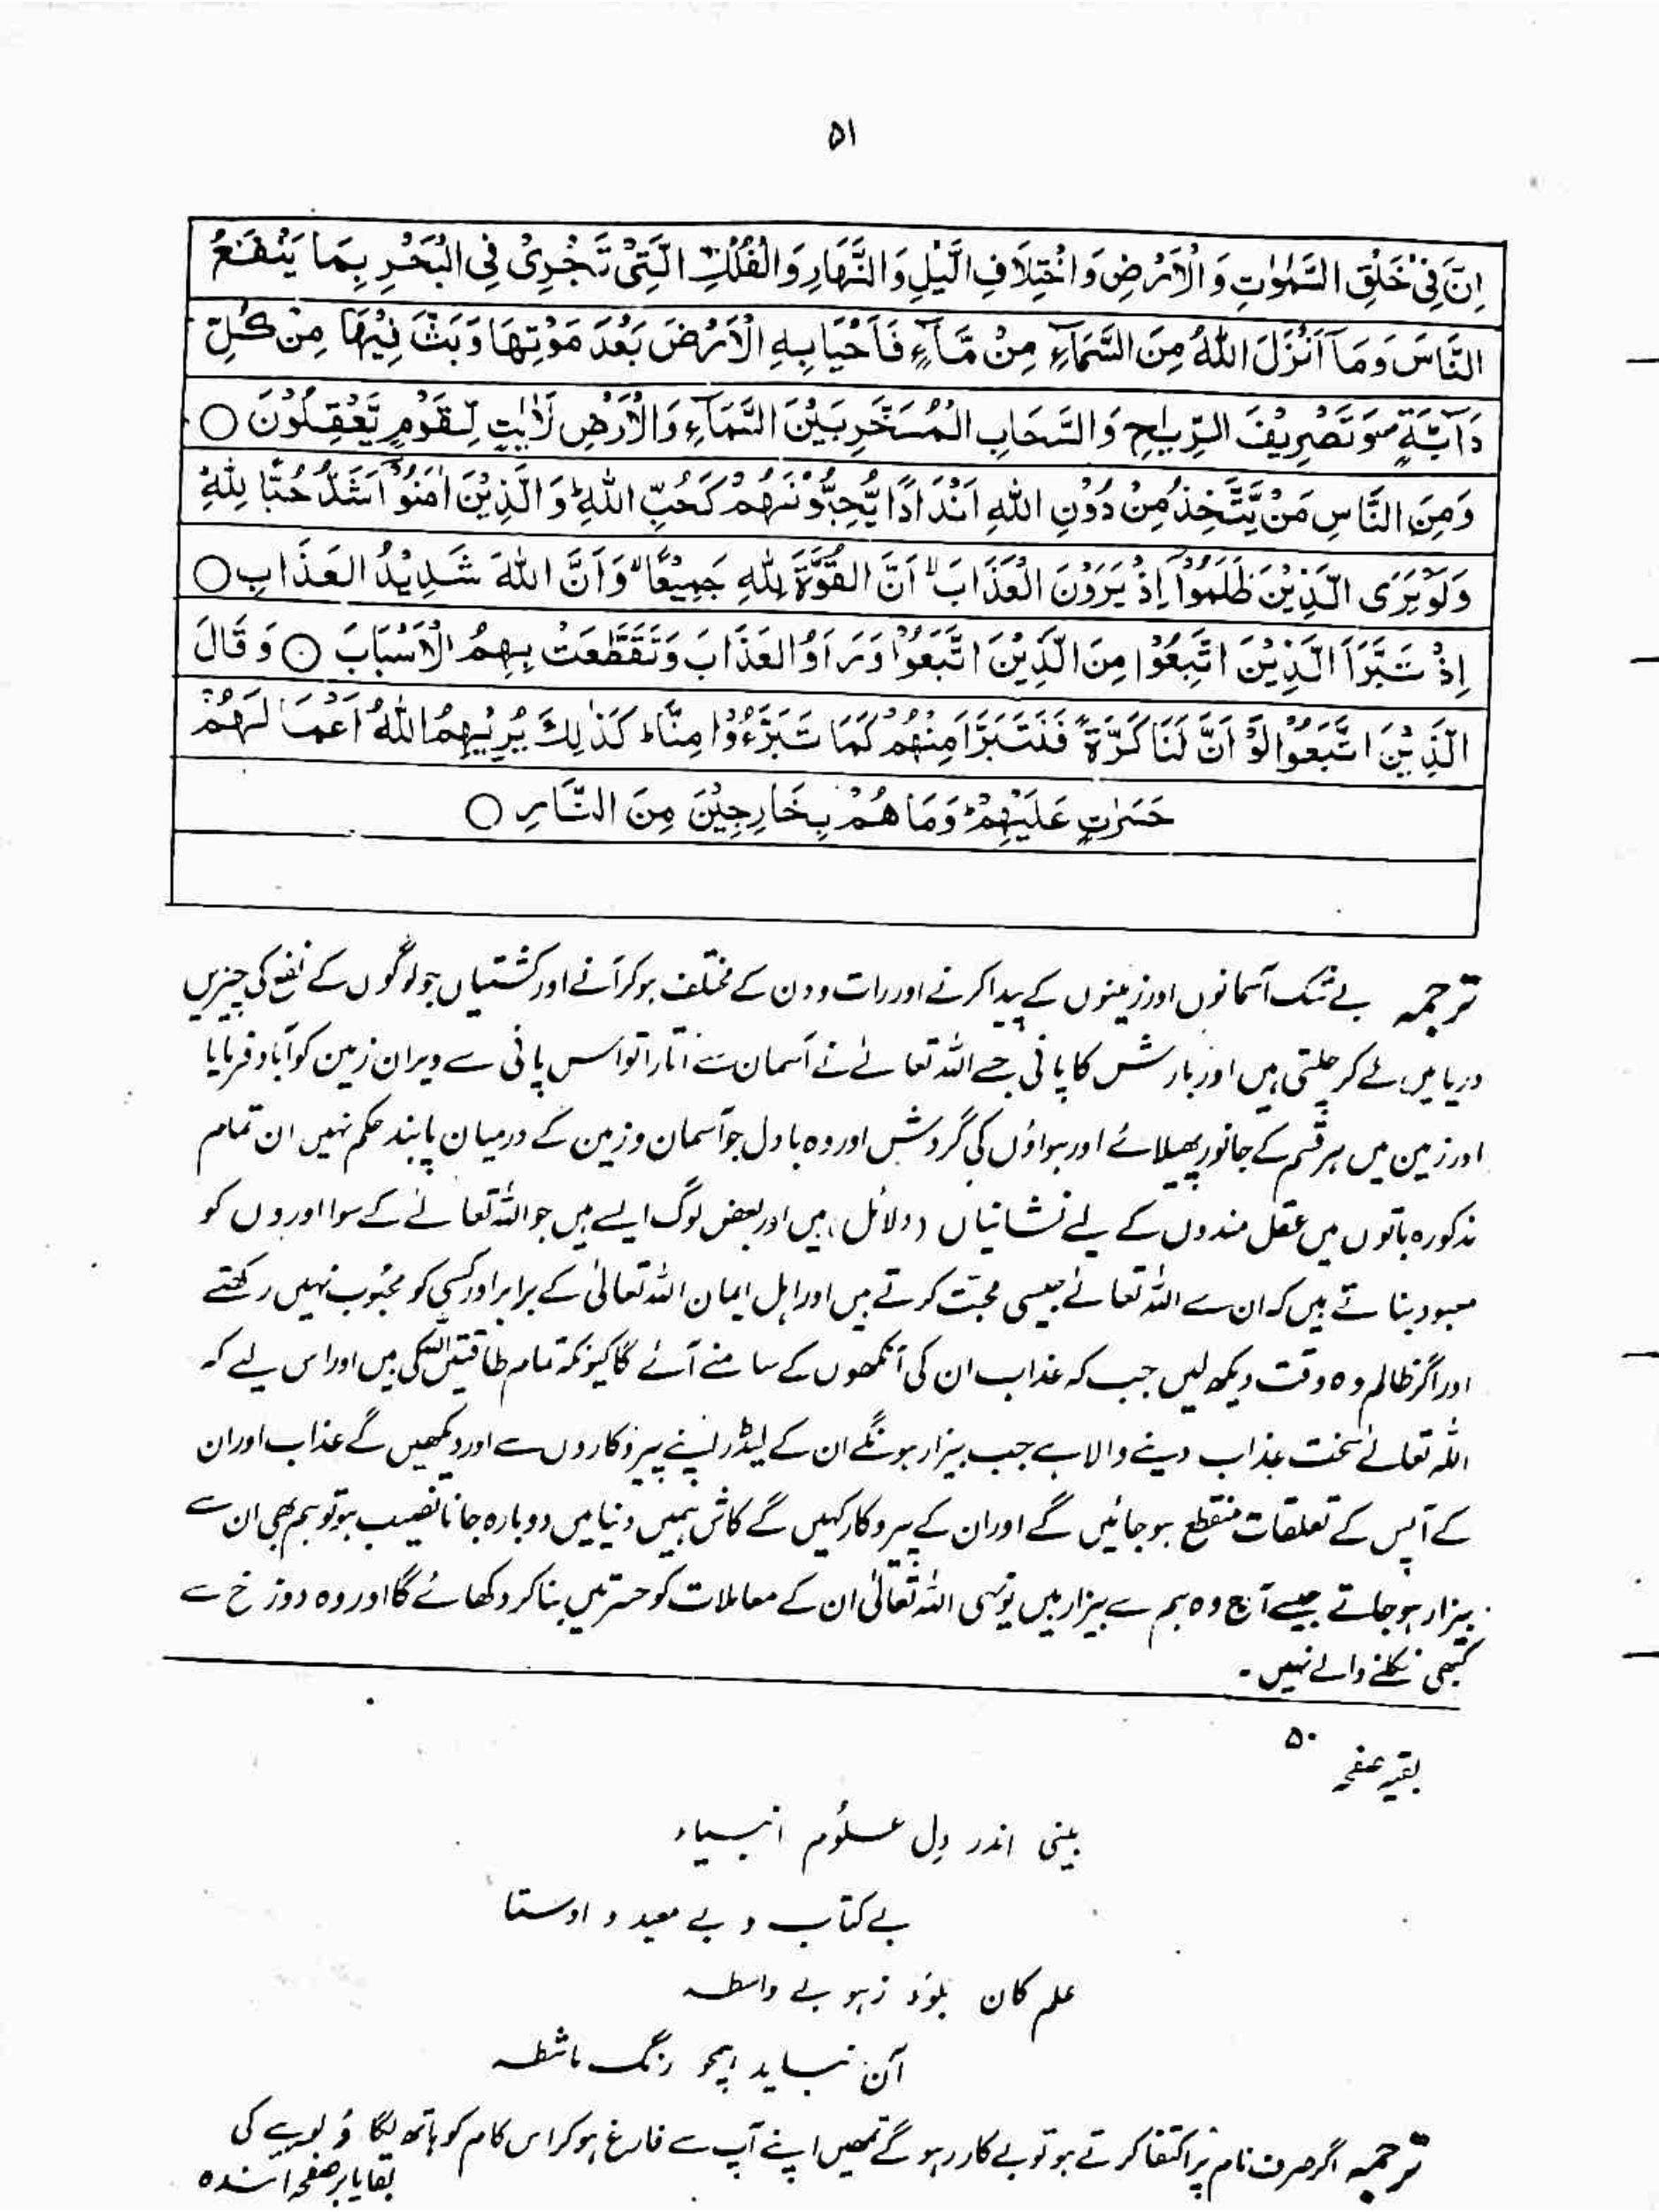 ۵۱
اِنَّ فِیْ خَلْقِ السَّمٰوٰتِ وَ الْاَرْضِ وَ اخْتِلَافِ الَّیْلِ وَ النَّهَارِ وَ الْفُلْكِ الَّتِیْ تَجْرِیْ فِی الْبَحْرِ بِمَا یَنْفَعُ
النَّاسَ وَ مَاۤ اَنْزَلَ اللّٰهُ مِنَ السَّمَآءِ مِنْ مَّآءٍ فَاَحْیَا بِهِ الْاَرْضَ بَعْدَ مَوْتِهَا وَ بَثَّ فِیْهَا مِنْ كُلِّ
دَآبَّةٍ ص وَ تَصْرِیْفِ الرِّیٰحِ وَ السَّحَابِ الْمُسَخَّرِ بَیْنَ السَّمَآءِ وَ الْاَرْضِ لَاٰیٰتٍ لِّقَوْمٍ یَّعْقِلُوْنَ ○
وَ مِنَ النَّاسِ مَنْ یَّتَّخِذُ مِنْ دُوْنِ اللّٰهِ اَنْدَادًا یُّحِبُّوْنَهُمْ كَحُبِّ اللّٰهِ ؕ وَ الَّذِیْنَ اٰمَنُوْۤا اَشَدُّ حُبًّا لِّلّٰهِ ؕ
وَ لَوْ یَرَى الَّذِیْنَ ظَلَمُوْۤا اِذْ یَرَوْنَ الْعَذَابَ ۙ اَنَّ الْقُوَّةَ لِلّٰهِ جَمِیْعًا ۙ وَّ اَنَّ اللّٰهَ شَدِیْدُ الْعَذَابِ ○
اِذْ تَبَرَّاَ الَّذِیْنَ اتُّبِعُوْا مِنَ الَّذِیْنَ اتَّبَعُوْا وَ رَاَوُا الْعَذَابَ وَ تَقَطَّعَتْ بِهِمُ الْاَسْبَابَ ○ وَ قَالَ
الَّذِیْنَ اتَّبَعُوْا لَوْ اَنَّ لَنَا كَرَّةً فَنَتَبَرَّاَ مِنْهُمْ كَمَا تَبَرَّءُوْا مِنَّا ؕ كَذٰلِكَ یُرِیْهِمُ اللّٰهُ اَعْمَالَهُمْ
حَسَرٰتٍ عَلَیْهِمْ ؕ وَ مَا هُمْ بِخَارِجِیْنَ مِنَ النَّارِ ○
ترجمہ بے شک آسمانوں اور زمینوں کے پیدا کرنے اور رات و دن کے مختلف ہو کر آنے اور کشتیاں جو لوگوں کے نفع کی چیزیں
دریا میں لے کر چلتی ہیں اور بارش کا پانی جسے اللہ تعالےٰ نے آسمان سے اتارا تو اس پانی سے ویران زمین کو آباد فرمایا
اور زمین میں ہر قسم کے جانور پھیلائے اور ہواؤں کی گردش اور وہ بادل جو آسمان و زمین کے درمیان پابند حکم نہیں ان تمام
مذکورہ باتوں میں عقل مندوں کے لیے نشانیاں (دلائل) ہیں اور بعض لوگ ایسے ہیں جو اللہ تعالےٰ کے سوا اوروں کو
معبود بناتے ہیں کہ ان سے اللہ تعالےٰ جیسی محبت کرتے ہیں اور اہل ایمان اللہ تعالیٰ کے برابر اور کسی کو محبوب نہیں رکھتے
اور اگر ظالم وہ وقت دیکھ لیں جب کہ عذاب ان کی آنکھوں کے سامنے آئے گا کیونکہ تمام طاقتیں اللہ کی ہیں اور اس لیے کہ
اللہ تعالےٰ سخت عذاب دینے والا ہے جب بیزار ہونگے ان کے لیڈر اپنے پیروکاروں سے اور دیکھیں گے عذاب اور ان
کے آپس کے تعلقات منقطع ہو جائیں گے اور ان کے پیروکار کہیں گے کاش ہمیں دنیا میں دوبارہ جانا نصیب ہو تو ہم بھی ان سے
بیزار ہو جاتے جیسے آج وہ ہم سے بیزار ہیں یونہی اللہ تعالیٰ ان کے معاملات کو حسرتیں بنا کر دکھائے گا اور وہ دوزخ سے
کبھی نکلنے والے نہیں۔
بقیہ صفحہ ۵۰
بینی اندر دِل علوُم انبیاء
بے کتاب و بے معید و اوستا
علم کان بلوَد زہو بے واسطہ
آن نپاید ہمچو رنگ ماشطہ
ترجمہ اگر صرف نام پر اکتفا کرتے ہو تو بے کار رہو گے تمھیں اپنے آپ سے فارغ ہو کر اس کام کو ہاتھ لگاؤ لوہے کی
بقایا بر صفحہ آئندہ